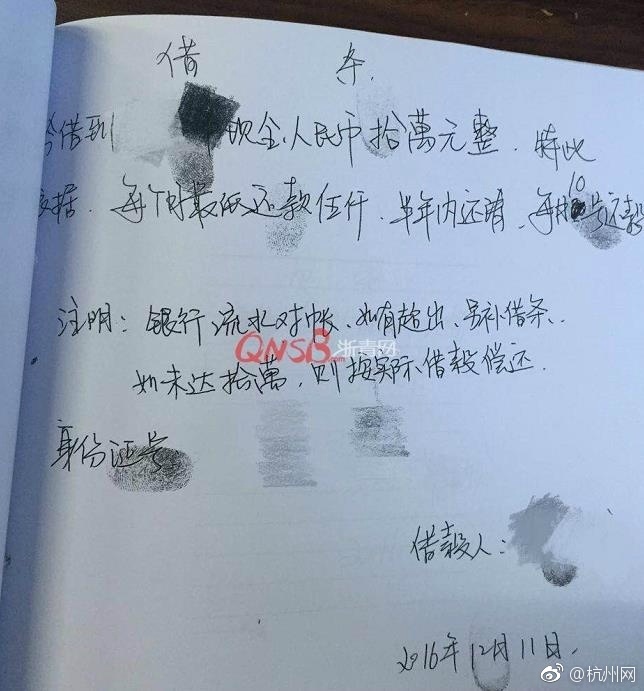 借 条.
今借到 现金人民币拾萬元整. 特此
立据. 每个月最低还款伍仟. 半年内还清, 每月10号还款
注明: 银行流水对帐、如有超出、另补借条、
QNSB 浙青网
如未达拾萬, 则按实际借款偿还.
身份证号
借款人:
2016年12月11日.
@杭州网